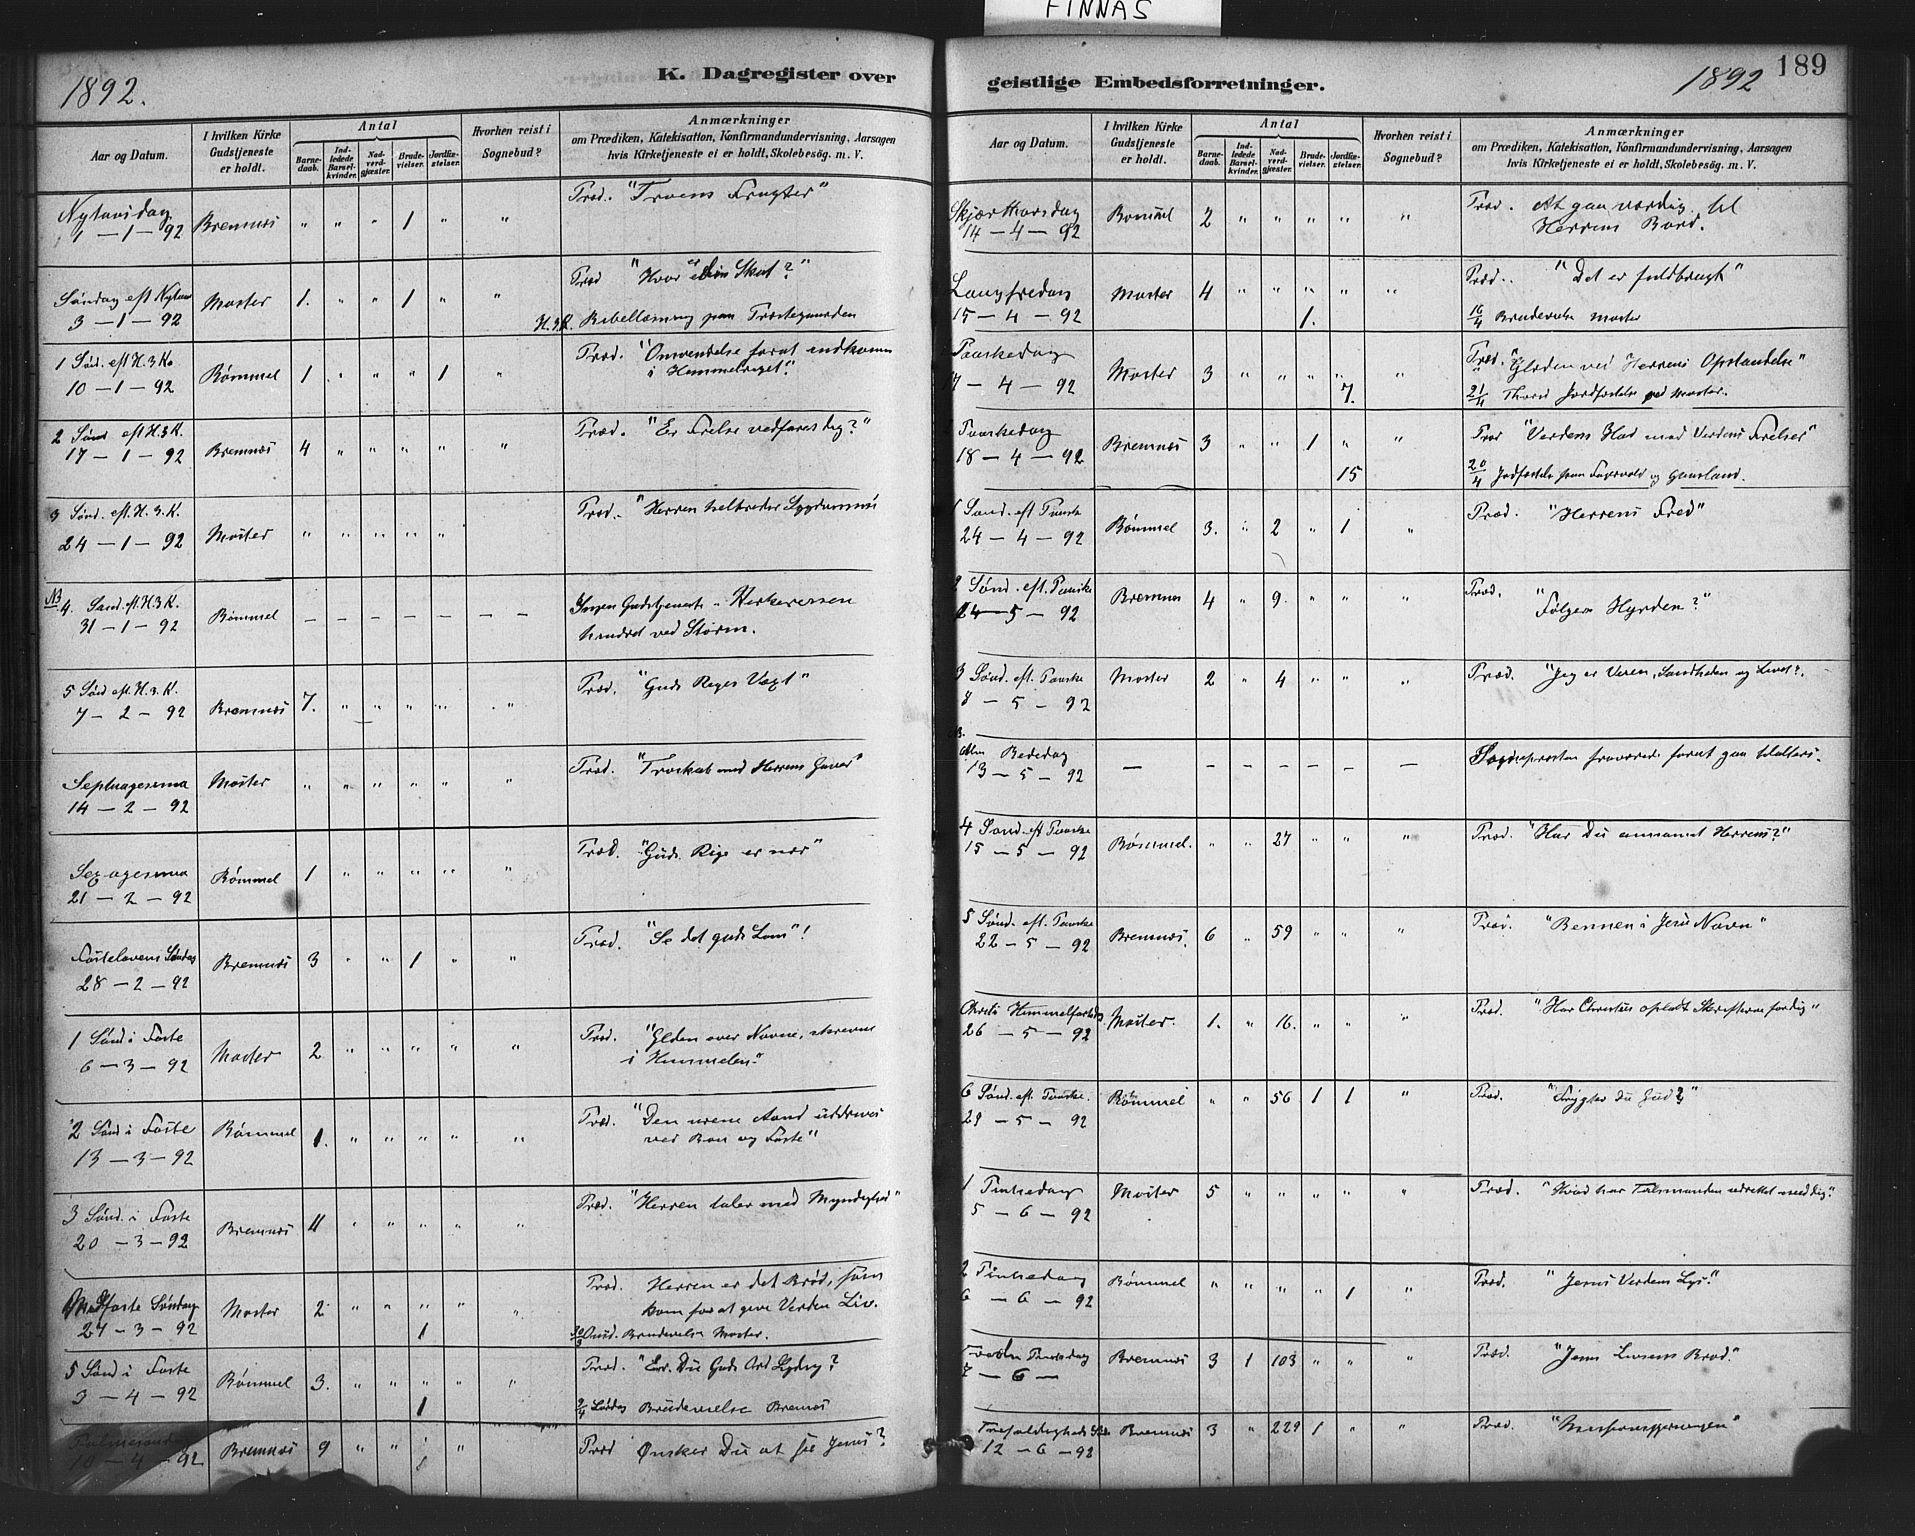 FINNAS
1892.
K. Dagregister over
Aar og Datum.
I hvilken Kirke Gudstjeneste er holdt.
Antal
Barnedaab.
Indledede Barselkvinder.
Nadverdgjæster.
Brudevielser.
Jordfæstelser.
Hvorhen reist i Sognebud?
Anmærkninger
om Prædiken, Katekisation, Konfirmandundervisning, Aarsagen
hvis Kirketjeneste ei er holdt, Skolebesög. m. V.
Nytaarsdag Bremnæs " " " 1 " " Præd. "Troens Frugter"
1 - 1 - 92
Søndag eft Nytaar Moster 1. " " 1 " " Præd "Hvor er din Skat?"
3 - 1 - 92 Bibellæsning paa
1 Sød. eft H. 3 Ko Bømmel 1 " " " 1 " Præd. "Omvendelse forat indkomme
10 - 1 - 92 i Himmelriget."
2 Sønd eft H. 3 K. Bremnæs 4 " " " " " Præd. "Er Frelse vedfaret dig?"
17 - 1 - 92
3 Sønd. eft. H. 3. K. Moster " " " " " Præd. "Herren helbreder
24 - 1 - 92
NB 4. Sønd. eft. H 3 K. Bømmel - - - - - - - Ingen Gudstjeneste.
31 - 1 - 92 hindret ved Storm.
5 Sønd eft. H. 3. K. Bremnæs 7. " " " " " Præd. "Guds Riges Væxt"
7 - 2 - 92
Septuagesima Moster " " " " " " Præd. "Troskab med Herrens Gaver"
14 - 2 - 92
Sexagesima Bømmel 1 " " " " " Præd. "Guds Rige er nær"
21 - 2 - 92
Fastelavens Søndag Bremnæs 3 " " 1 " " Præd. "Se det Guds Lam"!
28 - 2 - 92
1 Sønd i Faste Moster 2 " " " " " Præd. "Glæden over Navne, skrevne
6 - 3 - 92 i Himmelen."
2 Sønd i Faste Bømmel 1. " " " " " Præd. "Den urene Aand uddrives
13 - 3 - 92 ved Bøn og Faste"
3 Sønd. i Faste Bremnæs 4 " " " " " Præd. "Herren taler med Myndighed"
20 - 3 - 92
Midfaste Søndag Moster 2 " " " " " Præd. Herren er det Brød, som
27 - 3 - 92 1 kom for at give Verden Liv.
30/3 Onsd. Brudevielse Moster.
5 Sønd i Faste Bømmel 3. " " " " " Præd. "Er Du Guds Ord Lydig?
3 - 4 - 92 1 2/4 Lørdag Brudevielse Bremnæs
Palmesøndag Bremnæs 9 " " " " " Præd Ønsker Du at se Jesus?
10 - 4 - 92 1
geistlige Embedsforretninger.
1892 189
Aar og Datum.
I hvilken Kirke Gudstjeneste er holdt.
Antal
Barnedaab.
Indledede Barselkvinder.
Nadverdgjæster.
Brudevielser.
Jordfæstelser.
Hvorhen reist i Sognebud?
Anmærkninger
om Prædiken, Katekisation, Konfirmandundervisning, Aarsagen
hvis Kirketjeneste ei er holdt, Skolebesög. m. V.
Skjærthorsdag Bømmel 2 " " " " " Præd. At gaa værdig til
14 - 4 - 92 Herrens Bord.
Langfredag Moster 4 " " " " " Præd. "Det er fuldbragt"
15 - 4 - 92 1. 16/4 Brudevielse Moster
Paaskedag Moster 3 " " " " " Præd. "Glæden ved Herrens Opstandelse"
17 - 4 - 92 7. 21/4 Jordfæstelse ved Moster.
Paaskedag Bremnæs 3 " " 1 " " Præd "Verdens Had mod Verdens Frelser"
18 - 4 - 92 15 20/4 Jordfæstelse paa og
1 Sønd. eft Paaske Bømmel 3. " 2 " 1 " Præd. "Herrens Fred"
24 - 4 - 92
2 Sønd. eft. Paaske Bremnes 4 " 9. " " " Præd. "Følger Hyrden?"
- 5 - 92
3 Sønd. eft. Paaske Moster 2 " 4 " " " Præd. "Jeg er Veien, Sandheden og Livet".
8 - 5 - 92
Alm Bededag - - - - - - - Sognepresten fraværende forat gaa
13 - 5 - 92
4 Sønd. eft Paaske Bømmel. " " 27 " " " Præd. "Har Du annamet Herren?"
15 - 5 - 92
5 Sønd. eft. Paaske Bremnæs. 6 " 59 " " " Præd. "Bønnen i Jesu Navn"
22 - 5 - 92
Christi Himmelfartsdag Moster. 1. " 16. " " " Præd. "Har Christus opladt Skrifterne for dig"
26 - 5 - 92
6 Sønd. eft. Paaske. Bømmel " " 56 1 1 " Præd. "Frygter Du Gud?"
29 - 5 - 92
1 Pintsedag Moster 5 " " " " " Præd. "Hvad har Talsmanden udrettet med dig".
5 - 6 - 92
2 Pintsedag Bømmel " " " " 1 " Præd. "Jesus Verdens Lys."
6 - 6 - 92
Bremnæs 3 1 103 " " " Præd. "Jesus Livsens Brød."
7 - 6 -
Trefoldigheds Bremnæs 3 " 229 1 " " Præd. "Missionsgjerningen"
12 - 6 - 92